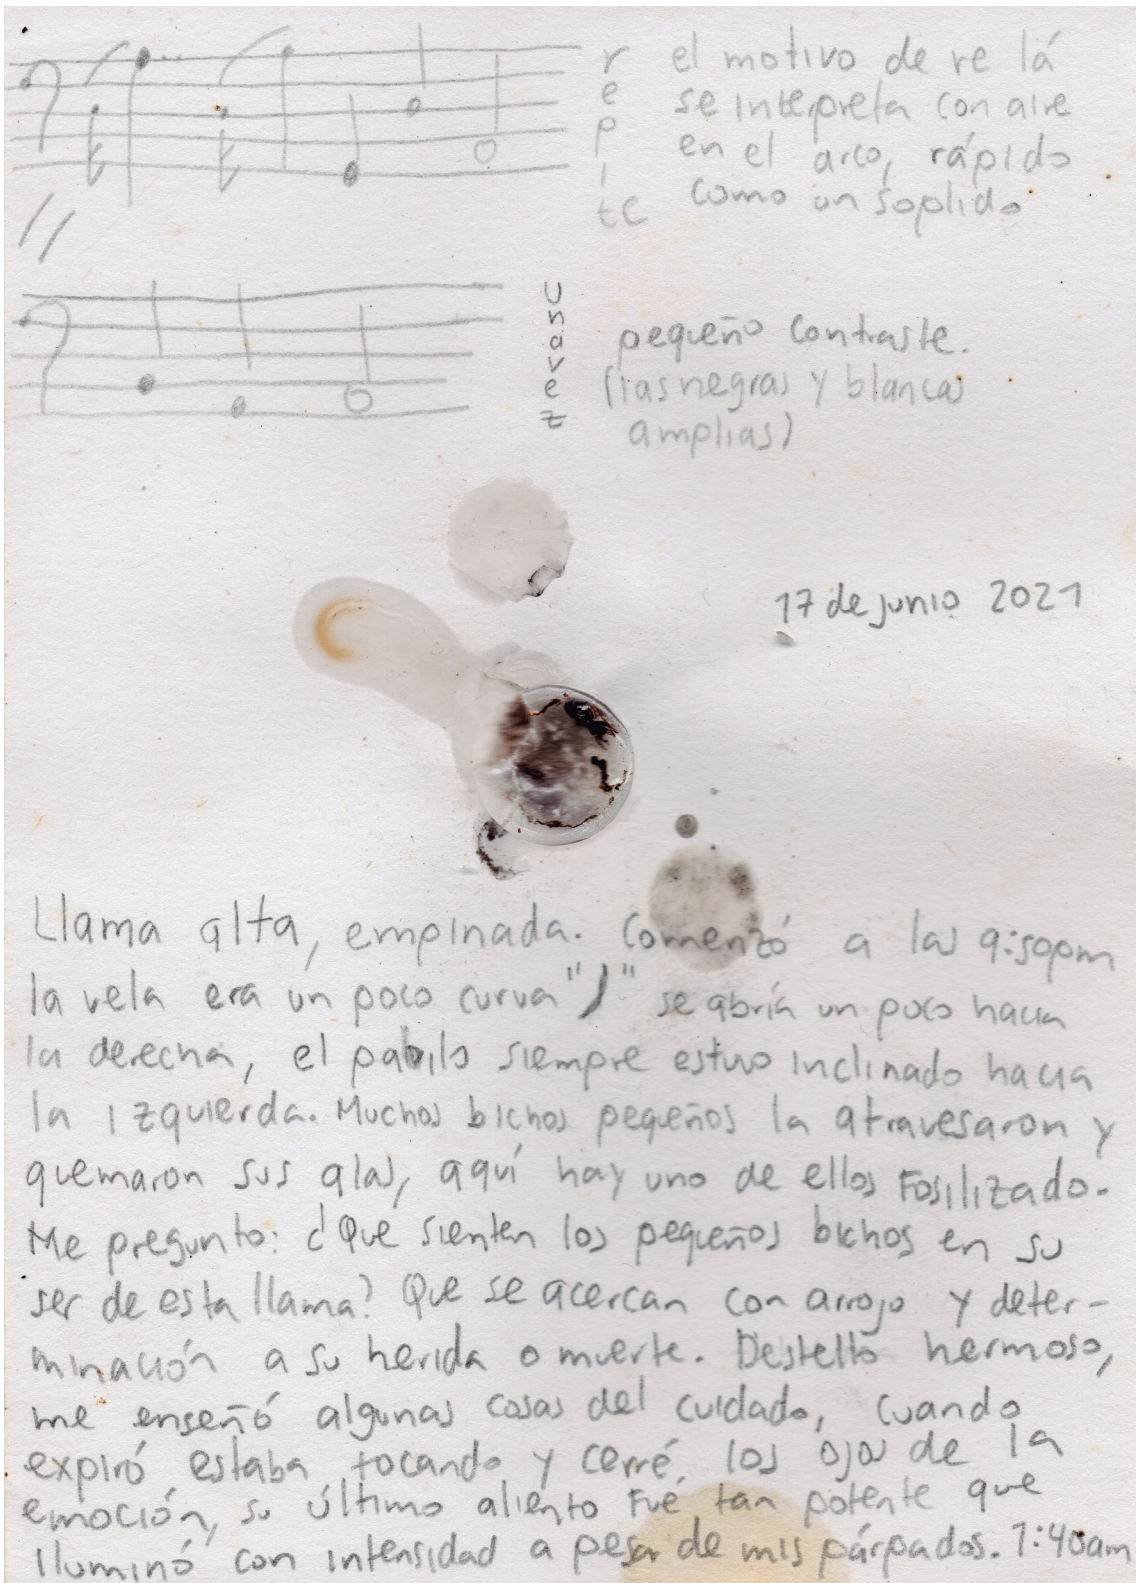 repite
el motivo de re lá
se interpreta con aire
en el arco, rápido
como un soplido
una vez
pequeño contraste.
(las negras y blancas
amplias)
17 de junio 2021
Llama alta, empinada. Comenzó a las 9:50pm
la vela era un poco curva ")" se abría un poco hacia
la derecha, el pabilo siempre estuvo inclinado hacia
la izquierda. Muchos bichos pequeños la atravesaron y
quemaron sus alas, aquí hay uno de ellos Fosilizado.
Me pregunto: ¿Que sienten los pequeños bichos en su
ser de esta llama? Que se acercan con arrojo y deter-
minación a su herida o muerte. Destello hermoso,
me enseñó algunas cosas del cuidado, cuando
expiró estaba tocando y cerré los ojos de la
emoción, su último aliento Fué tan potente que
iluminó con intensidad a pesar de mis párpados. 1:40am